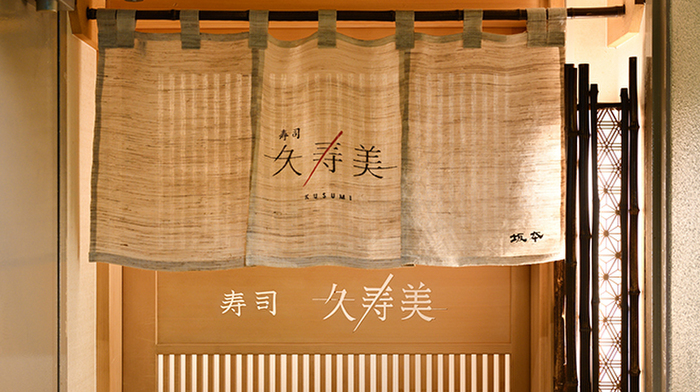 寿司
久寿美
KUSUMI
坂本
寿司 久寿美